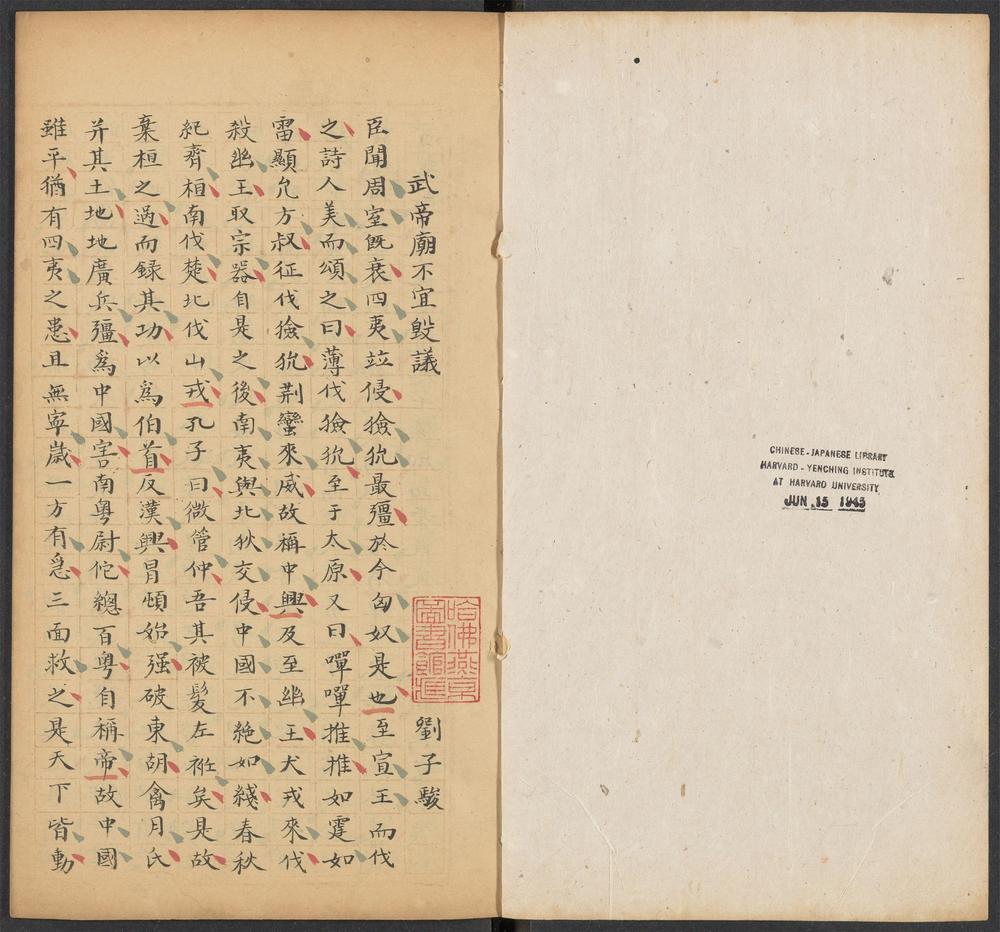 武帝廟不宜毀議 劉子駿
臣聞周室既衰四夷竝侵獫狁最彊於今匈奴是也至宣王而伐
之詩人美而頌之曰薄伐獫狁至于太原又曰嘽嘽推推如霆如
雷顯允方叔征伐獫狁荆蠻來威故稱中興及至幽王犬戎來伐
殺幽王取宗器自是之後南夷與北狄交侵中國不絕如綫春秋
紀齊桓南伐楚北伐山戎孔子曰微管仲吾其被髮左衽矣是故
棄桓之過而録其功以爲伯首及漢興冒頓始强破東胡禽月氏
并其土地地廣兵彊爲中國害南粤尉佗總百粤自稱帝故中國
雖平猶有四夷之患且無寧歲一方有急三面救之是天下皆動
哈佛燕京
圖書館
CHINESE-JAPANESE LIBRARY
HARVARD-YENCHING INSTITUTE
AT HARVARD UNIVERSITY
JUN 15 1943